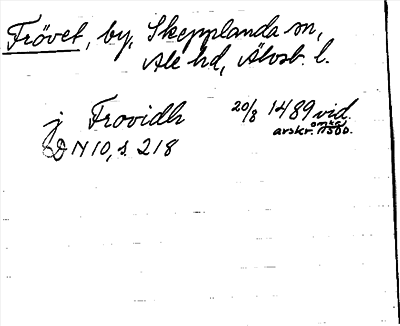 Frövet, by, Skepplanda sn,
Ale hd, Älvsb. l.
j Frovidh 20/8 1489 vid.
avskr. omkr 1500.
N 10, s. 218